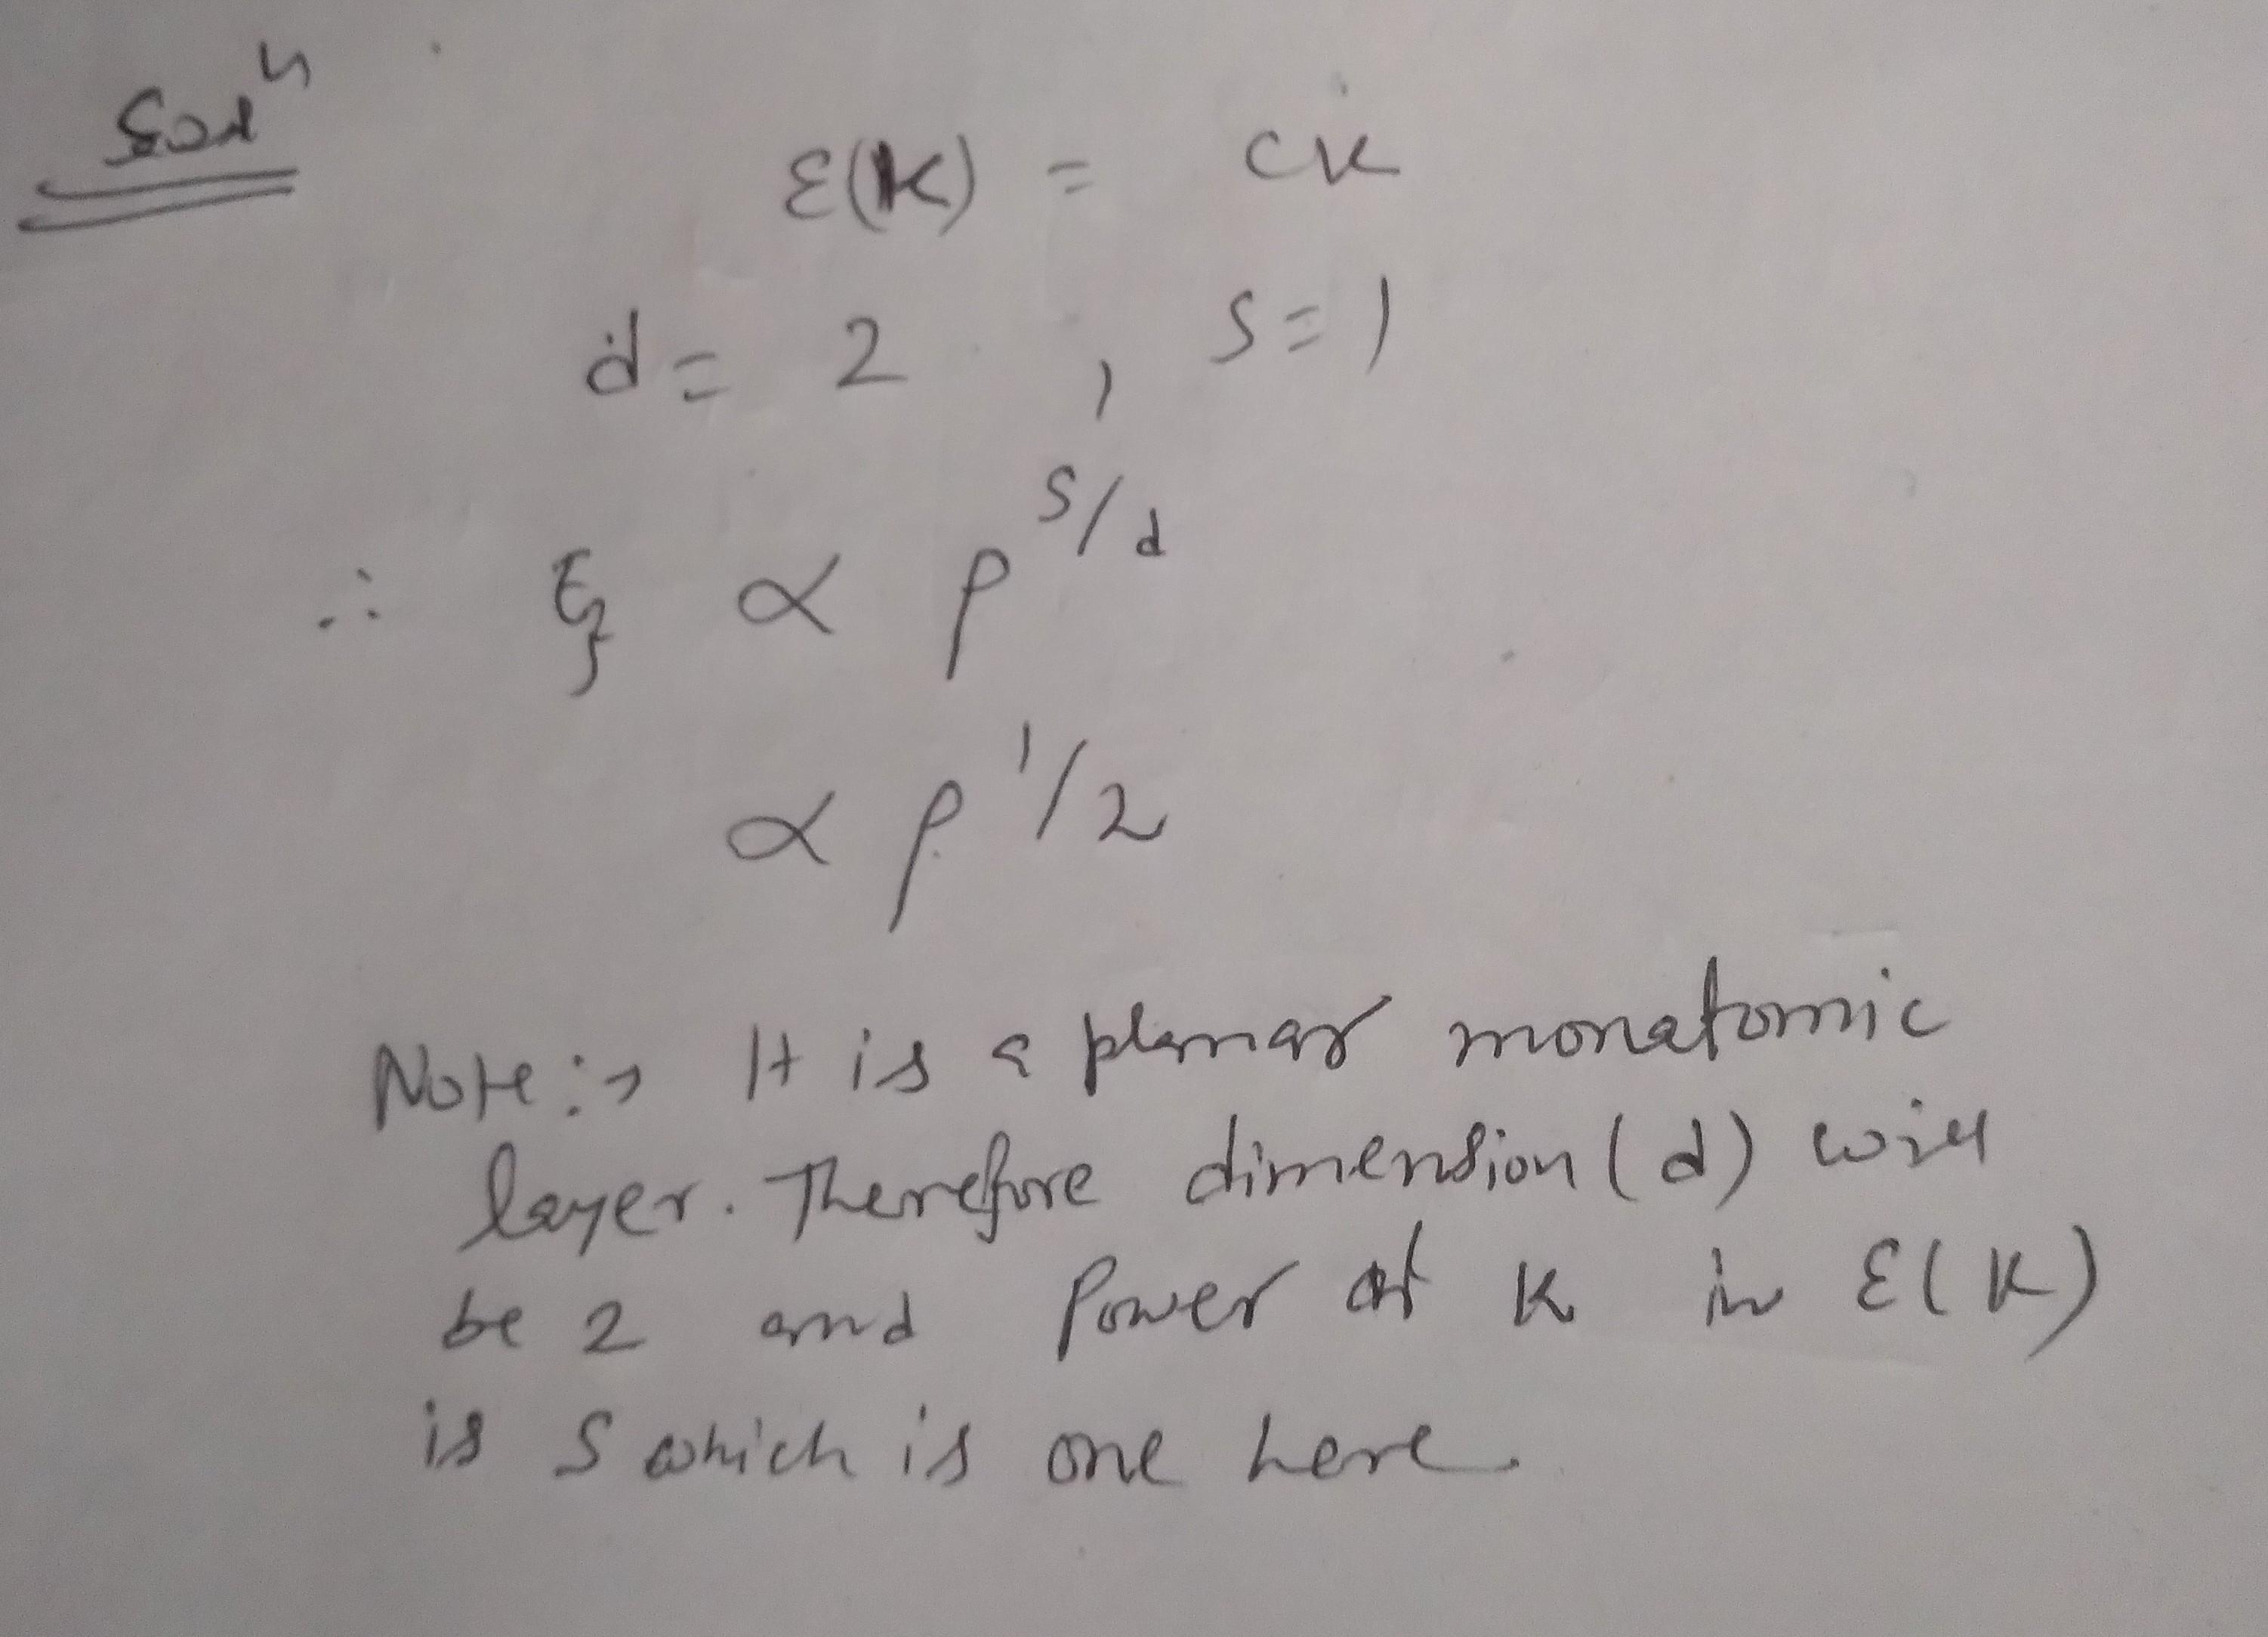 Solⁿ
ε(K) = CK
d = 2 , S = 1
∴ E_f ∝ ρ^{S/d}
∝ ρ^{1/2}
Note :→ It is a planar monatomic
layer. Therefore dimension (d) will
be 2 and Power of K in ε(K)
is S which is one here.